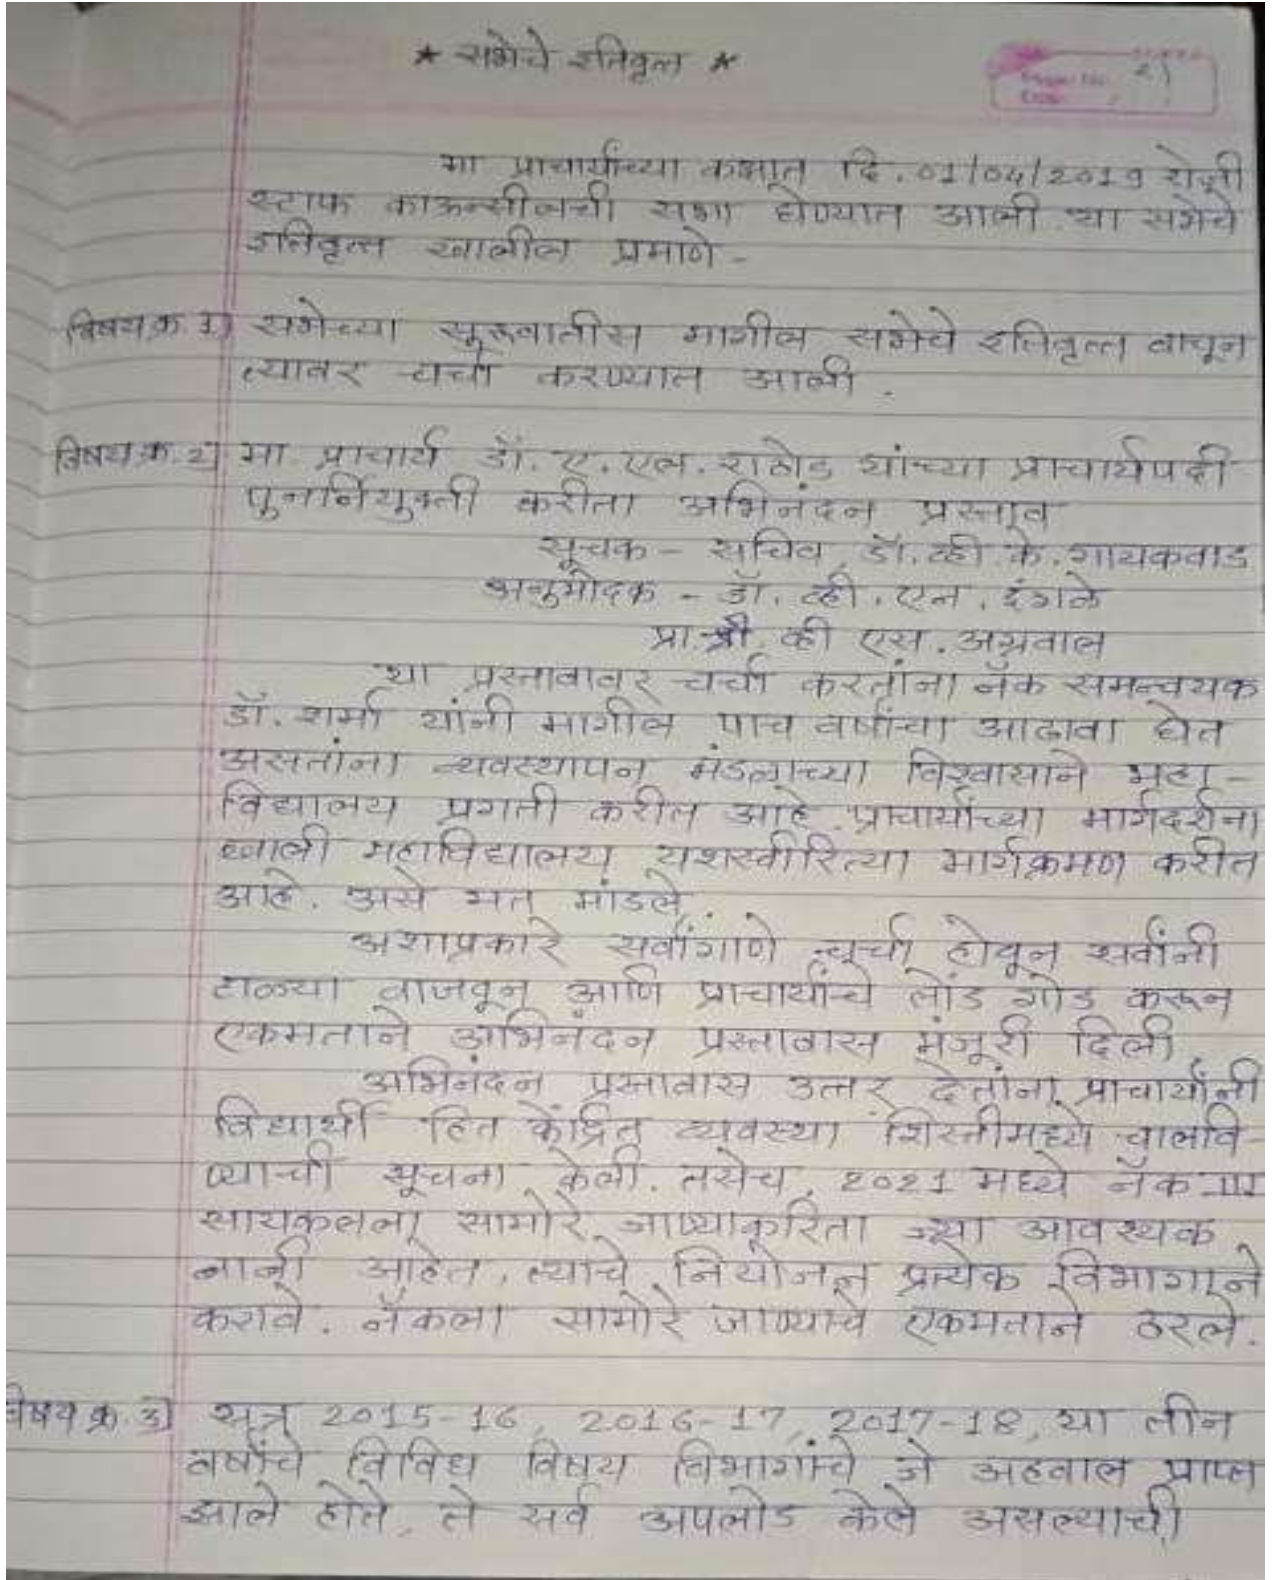 * सभेचे इतिवृत्त *
Page No. 21
Date
मा प्राचार्यांच्या कक्षात दि. 01/04/2019 रोजी
स्टाफ काऊन्सीलची सभा घेण्यात आली. या सभेचे
इतिवृत्त खालील प्रमाणे -
विषय क्र. 1) सभेच्या सुरूवातीस मागील सभेचे इतिवृत्त वाचून
त्यावर चर्चा करण्यात आली.
विषय क्र. 2) मा. प्राचार्य डॉ. ए. एल. राठोड यांच्या प्राचार्यपदी
पुनर्नियुक्ती करीता अभिनंदन प्रस्ताव
सूचक - सचिव, डॉ. व्ही. के. गायकवाड
अनुमोदक - डॉ. व्ही. एन. इंगळे
प्रा. श्री. व्ही एस. अग्रवाल
या प्रस्तावावर चर्चा करतांना नॅक समन्वयक
डॉ. शर्मा यांनी मागील पाच वर्षांचा आढावा घेत
असतांना व्यवस्थापन मंडळाच्या विश्वासाने महा-
विद्यालय प्रगती करीत आहे. प्राचार्यांच्या मार्गदर्शना
खाली महाविद्यालय यशस्वीरित्या मार्गक्रमण करीत
आहे. असे मत मांडले.
अशाप्रकारे सर्वांगाणे चर्चा होवून सर्वांनी
टाळ्या वाजवून आणि प्राचार्यांचे तोंड गोड करून
एकमताने अभिनंदन प्रस्तावास मंजूरी दिली
अभिनंदन प्रस्तावास उत्तर देतांना, प्राचार्यांनी
विद्यार्थी हित केंद्रित व्यवस्था शिस्तीमध्ये चालवि-
ण्याची सूचना केली. तसेच, 2021 मध्ये नॅक III
सायकलला सामोरे जाण्याकरिता ज्या आवश्यक
बाबी आहेत, त्याचे नियोजन प्रत्येक विभागाने
करावे. नॅकला सामोरे जाण्याचे एकमताने ठरले.
विषय क्र. 3) सत्र 2015-16, 2016-17, 2017-18, या तीन
वर्षांचे विविध विषय विभागांचे जे अहवाल प्राप्त
झाले होते, ते सर्व अपलोड केले असल्याची